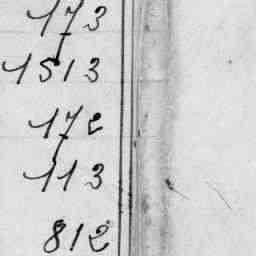 173
1513
172
113
812